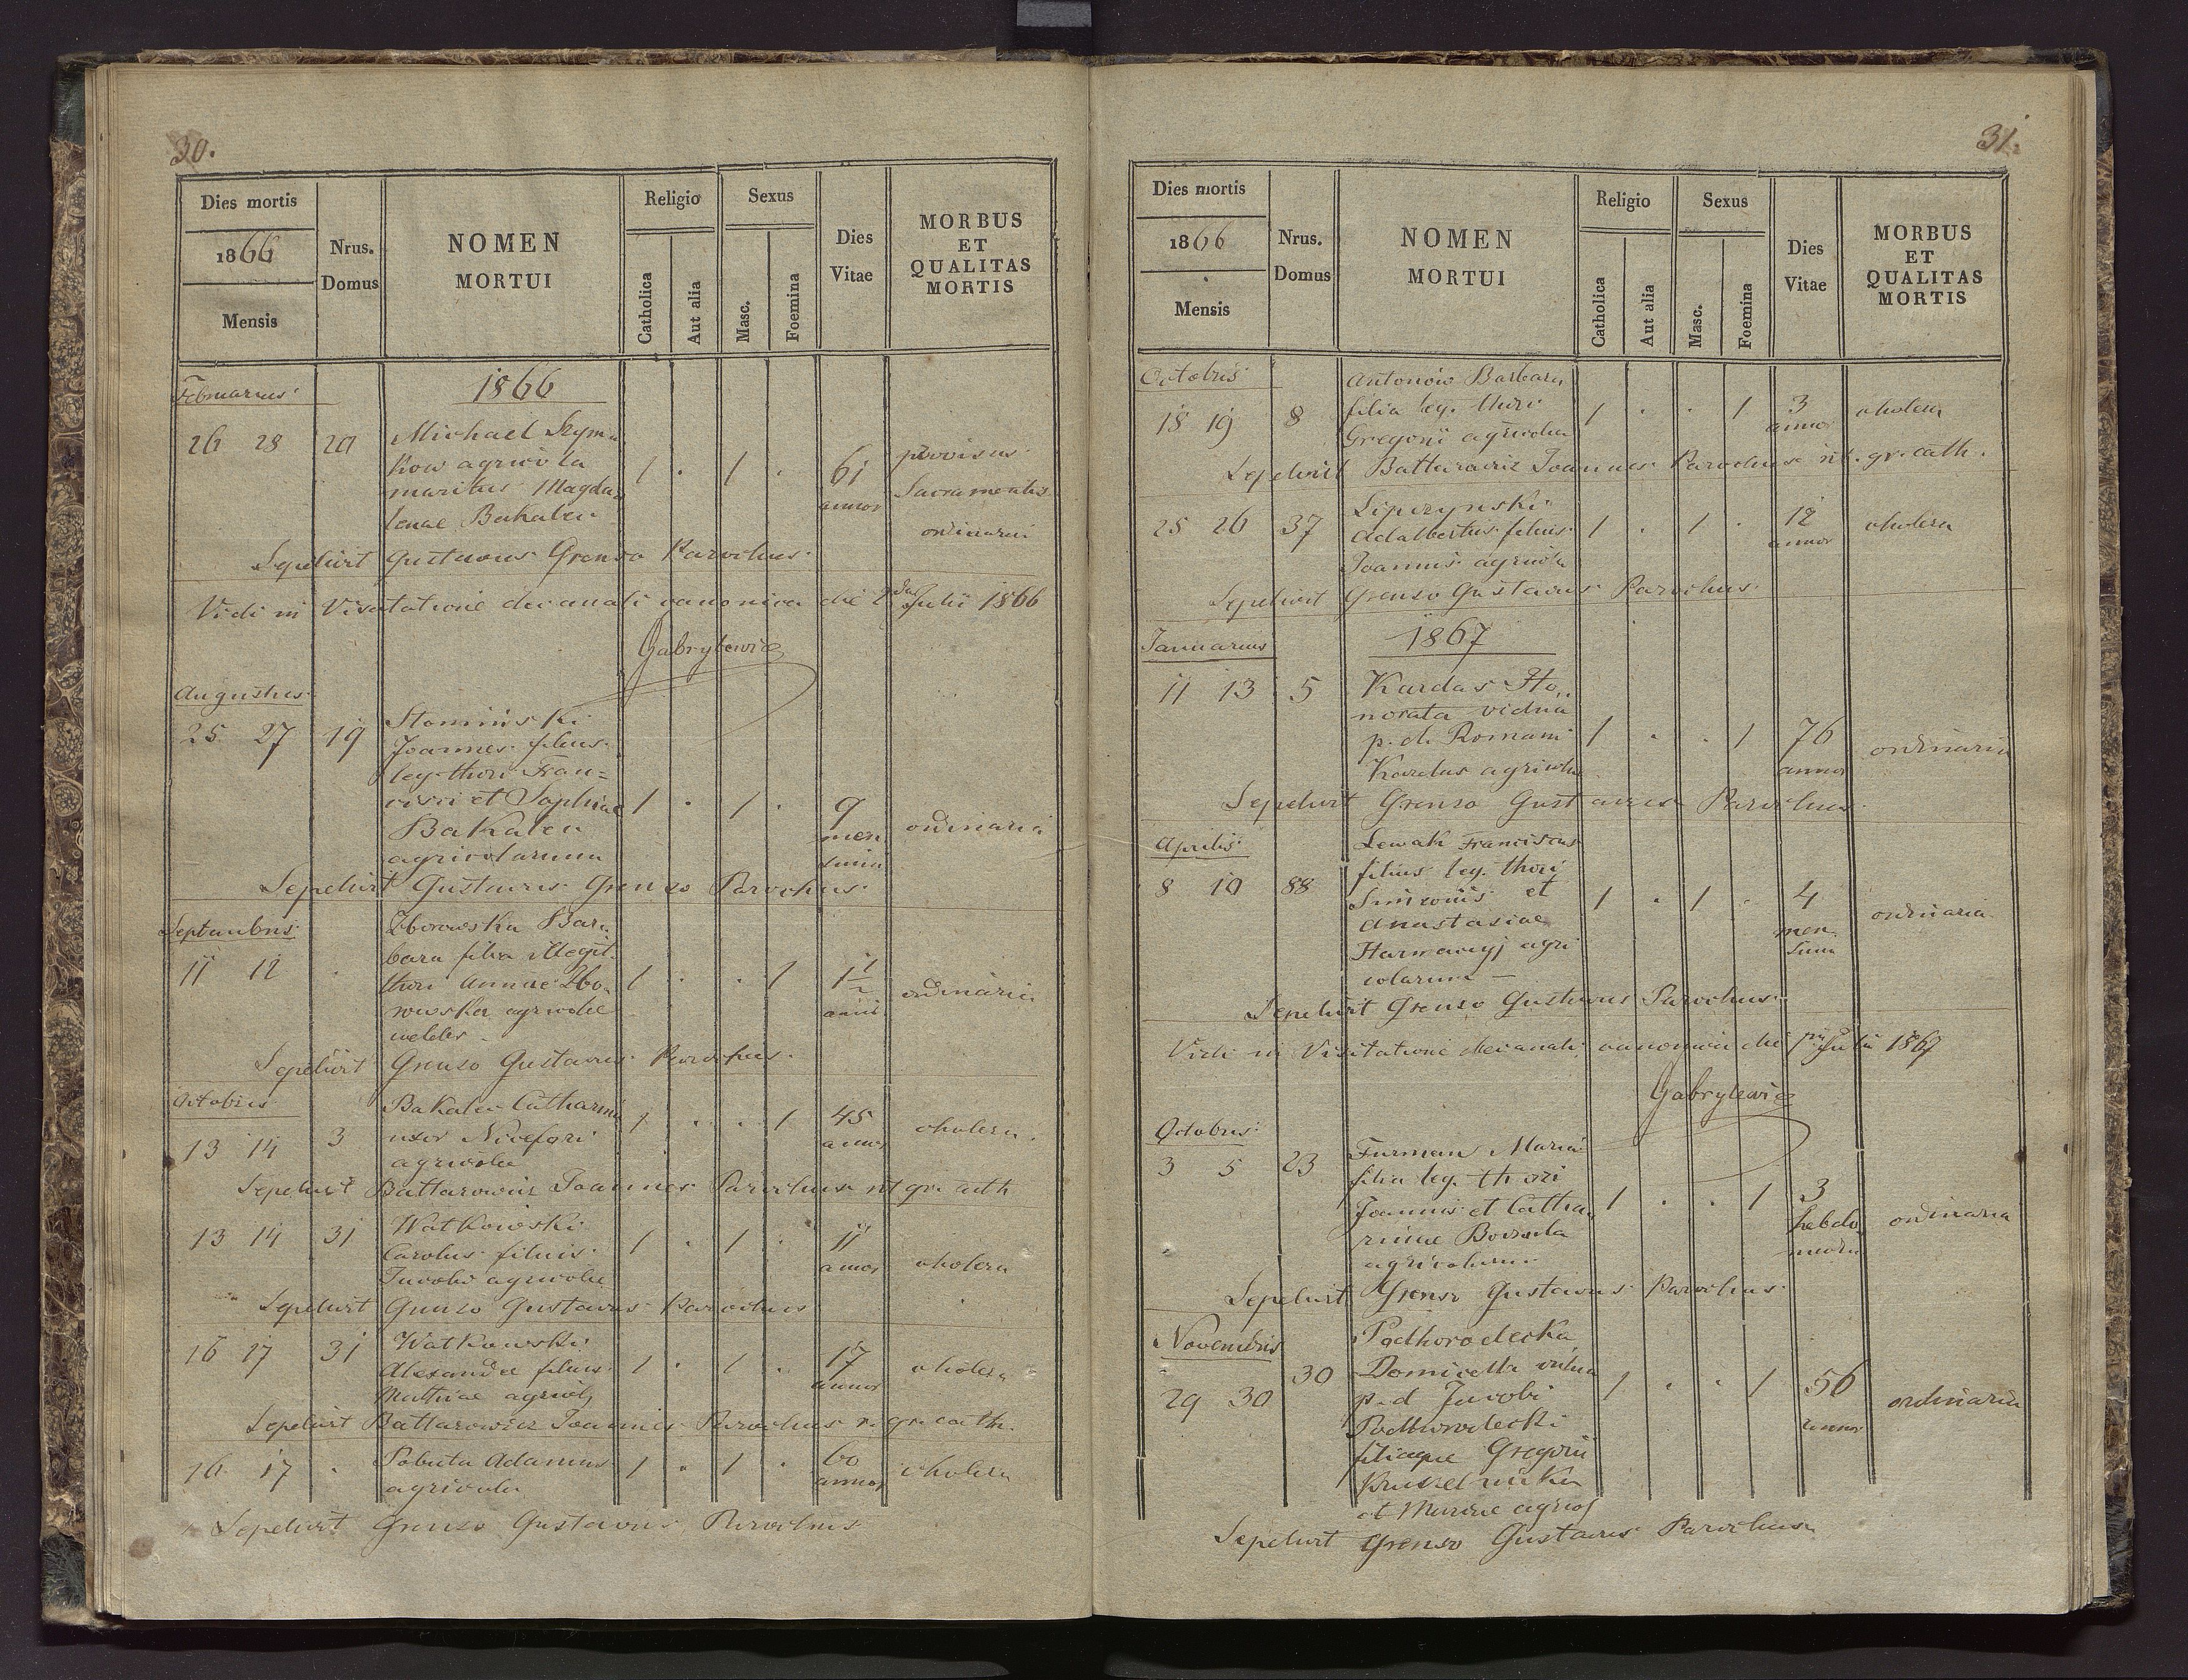 30.
Dies mortis
1866
Mensis
Nrus.
Domus
NOMEN
MORTUI
Religio
Catholica
Aut alia
Sexus
Masc.
Foemina
Dies
Vitae
MORBUS
ET
QUALITAS
MORTIS
Februarius
1866
26 28 20 Michael Szym
kow agricola 1 . 1 . 61 provisus
maritus Magda annor Sacramentis
lenae Bakalcu ordinaria
Sepelivit Gustavus Grenso Parochus
Vidi in Visitatione decanali canonica die Julii 1866
Gabrylewicz
Augustus
25 27 19 Slominski
Joannes filius
leg. thori Fran=
cisci et Sophiae 1 . 1 . 9
Bakalcu men ordinaria
agricolarum sium
Sepelivit Gustavus Grenso Parochus
Septembris Zborowska Bar
11 12 . bara filia illegit.
thori Annae Zbo 1 . . 1 1½ ordinaria
rowska agricolae anni
Sepelivit Grenso Gustavus Parochus.
Octobris Bakalcu Catharina
13 14 3 uxor Nicefori 1 . . 1 45 cholera.
agricolae annor
Sepelivit Battarowicz Joannes Parochus rit gr. cath
13 14 31 Watkowski
Carolus filius 1 . 1 . 11 cholera
Jacobi agricolae annor
Sepelivit Grenso Gustavus Parochus
16 17 31 Watkowski
Alexander filius 1 . 1 . 17 cholera
Mathiae agricol annor
Sepelivit Battarowicz Joannes Parochus r. gr. cath.
16 17 . Pobuta Adamus 1 . 1 . 60 cholera
agricola annor
Sepelivit Grenso Gustavus Parochus
31.
Dies mortis
1866
Mensis
Nrus.
Domus
NOMEN
MORTUI
Religio
Catholica
Aut alia
Sexus
Masc.
Foemina
Dies
Vitae
MORBUS
ET
QUALITAS
MORTIS
Octobris Antonow Barbara
18 19 8 filia leg. thori 1 . . 1 3 cholera
Gregorii agricolae annor
Sepelivit Battarowicz Joannes Parochus rit. gr. cath.
25 26 37 Lipczynski
Adalbertus filius 1 . 1 . 12 cholera
Joannis agricola annor
Sepelivit Grenso Gustavus Parochus
Januarius 1867
11 13 5 Kardas Ho„
norata vidua
p. d. Romani 1 . . 1 76 ordinaria
Kardas agricolae annor
Sepelivit Grenso Gustavus Parochus
Aprilis Lewak Franciscus
8 10 88 filius leg. thori
Simeonis et 1 . 1 . 4 ordinaria
Anastasiae men
agri sium
colarum —
Sepelivit Grenso Gustavus Parochus
Vidi in Visitatione decanali canonica die Julii 1867
Gabrylewicz
Octobris
3 5 23 Furman Maria
filia leg. thori
Joannis et Catha 1 . . 1 3 ordinaria
rinae hebdo
agricolarum madar
Sepelivit Grenso Gustavus Parochus
Novembris Podhorodecka
29 30 30 Domicella vidua
p. d. Jacobi 1 . . 1 56 ordinaria
Podhorodecki annor
filiaque Gregorii
et Mariae agricol
Sepelivit Grenso Gustavus Parochus